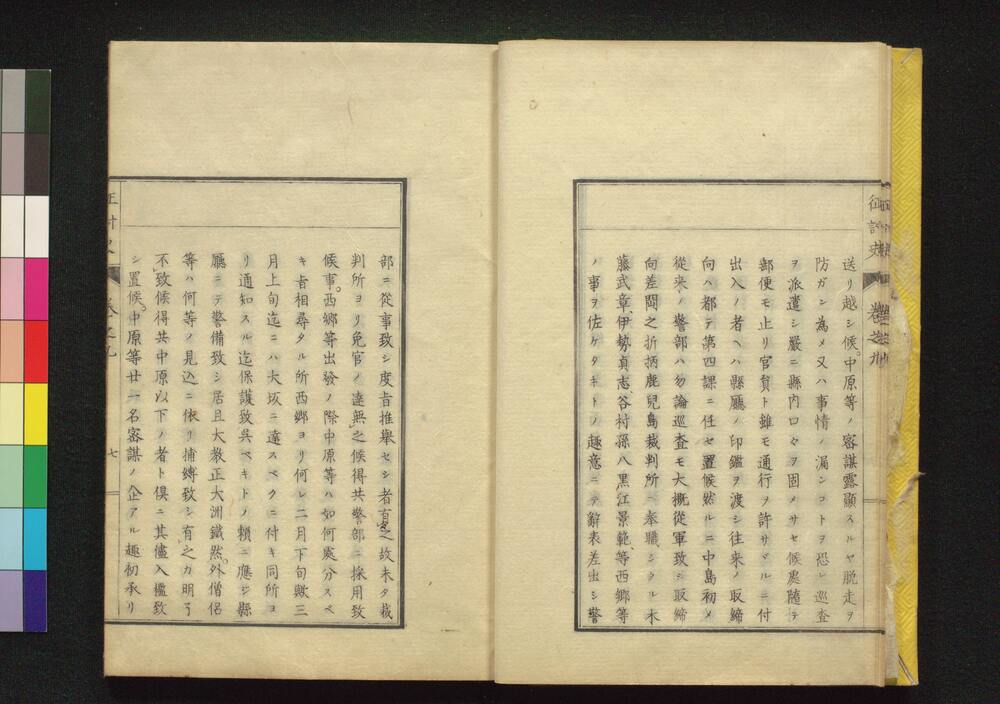 征討史 巻之九
送リ越シ候。中原等ノ密謀露顕スルヤ脱走ヲ
防ガン為メ又ハ事情ノ漏ンコトヲ恐レ巡査
ヲ派遣シ嚴ニ縣内口々ヲ固メサセ候處隨テ
郵便モ止リ官貟ト雖モ通行ヲ許サヾルニ付
出入ノ者ヘハ縣廳ノ印鑑ヲ渡シ往来ノ取締
向ハ都テ第四課ニ任セ置候然ルニ中島初メ
從来ノ警部ハ勿論巡査モ大概從軍致シ取締
向差閊之折柄鹿兒島裁判所ヘ奉職シタル木
藤武章、伊勢貞志、谷村孫八、黒江景範、等西郷等
ノ事ヲ佐ケタキトノ趣意ニテ辭表差出シ警
部ニ從事致シ度旨推舉セシ者有之故未タ裁
判所ヨリ免官ノ達無之候得共警部ニ採用致
候事。西郷等出發ノ際中原等ハ如何處分スベ
キ旨相尋タル所西郷ヨリ何レ二月下旬歟三
月上旬迄ニハ大坂ニ達スベクニ付キ同所ヨ
リ通知スル迄保護致呉ベキトノ頼ニ應ジ縣
廳ニテ警備致シ居且大教正大洲鐵然。外僧侶
等ハ何等ノ見込ニ依リ捕縛致シ有之カ明了
不致候得共中原以下ノ者ト倶ニ其儘入檻致
シ置候。中原等廿一名密謀ノ企アル趣初承リ
巻之九
七